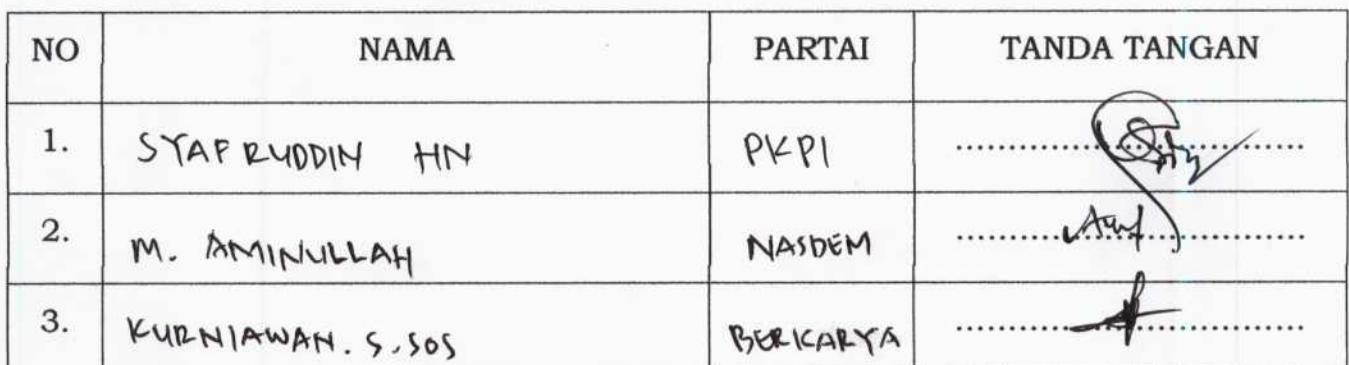 NO NAMA PARTAI TANDA TANGAN
1. SYAFRUDDIN HN PKPI
2. M. AMINULLAH NASDEM
3. KURNIAWAN. S.SOS BERKARYA